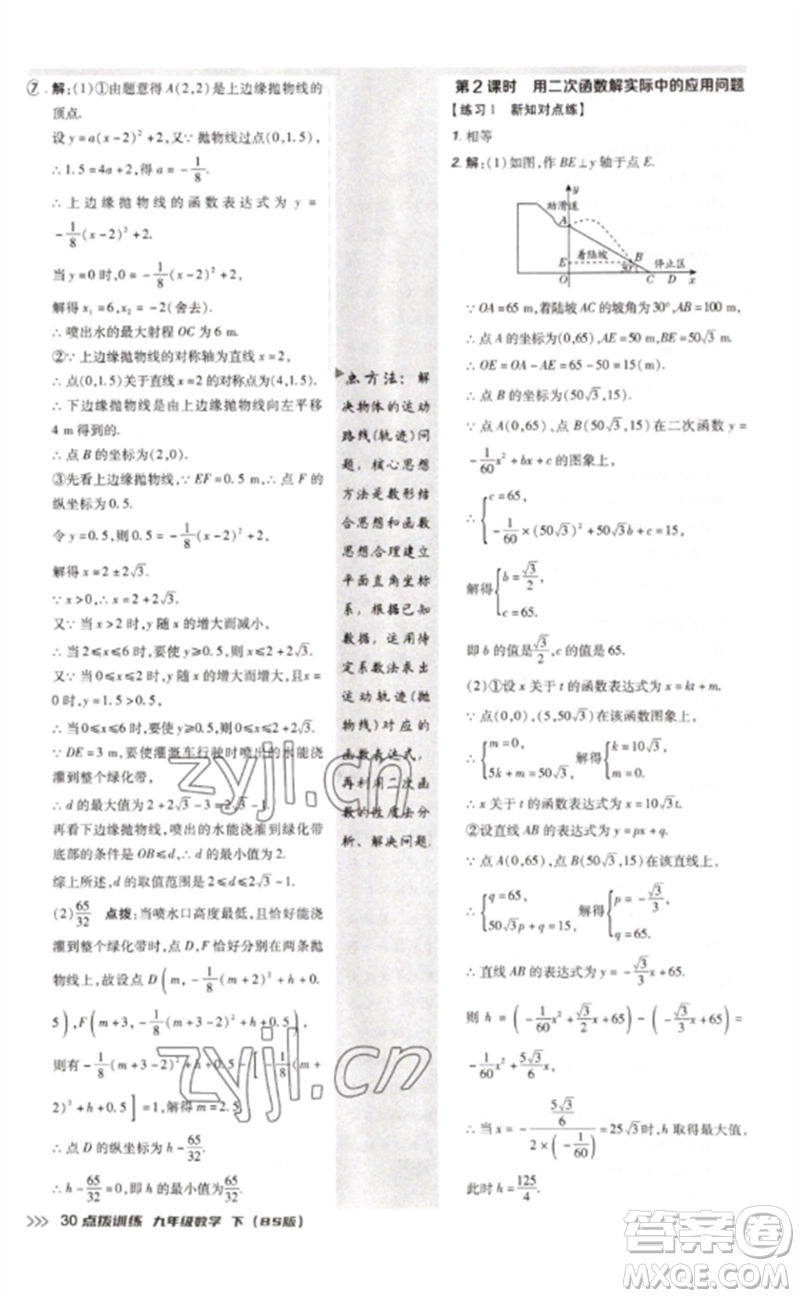 ⑦ 解:(1)①由题意得A(2,2)是上边缘抛物线的
顶点.
设y=a(x-2)²+2.又∵抛物线过点(0,1.5),
∴1.5=4a+2,得a=-1/8.
∴上边缘抛物线的函数表达式为y=
-1/8(x-2)²+2.
当y=0时,0=-1/8(x-2)²+2,
解得x₁=6,x₂=-2(舍去).
∴喷出水的最大射程OC为6 m.
②∵上边缘抛物线的对称轴为直线x=2,
∴点(0,1.5)关于直线x=2的对称点为(4,1.5).
∴下边缘抛物线是由上边缘抛物线向左平移
4 m得到的.
∴点B的坐标为(2,0).
③先看上边缘抛物线,∵EF=0.5,∴点F的
纵坐标为0.5.
令y=0.5,则0.5=-1/8(x-2)²+2,
解得x=2±2√3.
∵x>0,∴x=2+2√3.
又∵当x>2时,y随x的增大而减小,
∴当2≤x≤6时,y≥0.5,则2≤x≤2+2√3.
又∵当0≤x≤2时,y随x的增大而增大,
且x=0时,y=1.5>0.5,
∴当0≤x≤6时,y≥0.5,则0≤x≤2+2√3.
∵DE=3,为使灌溉车行驶时喷出的水能浇
灌到整个绿化带,
∴d的最大值为2+2√3-3=2√3-1.
再看下边抛物线,喷出的水能浇灌到绿化带
底部的条件是OB≤d,∴d的最小值为2.
综上所述,d的取值范围是2≤d≤2√3-1.
(2)65/32 点拨:当喷水口高度最低,且恰好能浇
灌到整个绿化带时,点D,F恰好分别在两条抛
物线上,故设点D(m,-1/8(m+2)²+h+0.
5),F(m+3,-1/8(m+3-2)²+h+0.5),
则有-1/8(m+3-2)²+h+0.5-[-1/8(m+
2)²+h+0.5]=1,解得m=2.5.
∴点D的纵坐标为h-65/32.
∴h-65/32=0.∴h的最小值为65/32.
点方法:解
决物体的运动
路线(轨迹)问
题,核心思想
方法是数形结
合思想和函数
思想合理建立
平面直角坐标
系,根据已知
数据,运用待
定系数法表出
运动轨迹(抛
物线)对应的
函数表达式,
再利用二次函
数的性质法分
析、解决问题.
第2课时 用二次函数解实际中的应用问题
【练习1 新知对点练】
1. 相等
2. 解:(1)如图,作BE⊥y轴于点E.
y
助滑道
A
E
着陆坡
B
30°
停止区
O
C
D
x
∵OA=65 m,着陆坡AC的坡角为30°,AB=100 m,
∴点A的坐标为(0,65),AE=50 m,BE=50√3 m.
∴OE=OA-AE=65-50=15(m).
∴点B的坐标为(50√3,15).
∵点A(0,65)、点B(50√3,15)在二次函数y=
-1/60x²+bx+c的图象上,
∴{c=65,
-1/60×(50√3)²+50√3b+c=15,
解得{b=√3/2,
c=65.
即b的值是√3/2,c的值是65.
(2)①设x关于t的函数表达式为x=kt+m.
∵点(0,0),(5,50√3)在该函数图象上,
∴{m=0,
5k+m=50√3, 解得{k=10√3,
m=0.
∴x关于t的函数表达式为x=10√3t.
②设直线AB的表达式为y=px+q.
∵点A(0,65)、点B(50√3,15)在该直线上,
∴{q=65,
50√3p+q=15, 解得{p=-√3/3,
q=65.
∴直线AB的表达式为y=-√3/3x+65.
则h=(-1/60x²+√3/2x+65)-(-√3/3x+65)
=-1/60x²+5√3/6x.
∴当x=-(5√3/6)/(2×(-1/60))=25√3时,h取得最大值.
此时h=125/4.
30 点拨训练 九年级数学 下(BS版)
zyjl.cn
zyjl.cn
作业精灵
MXQE.COM